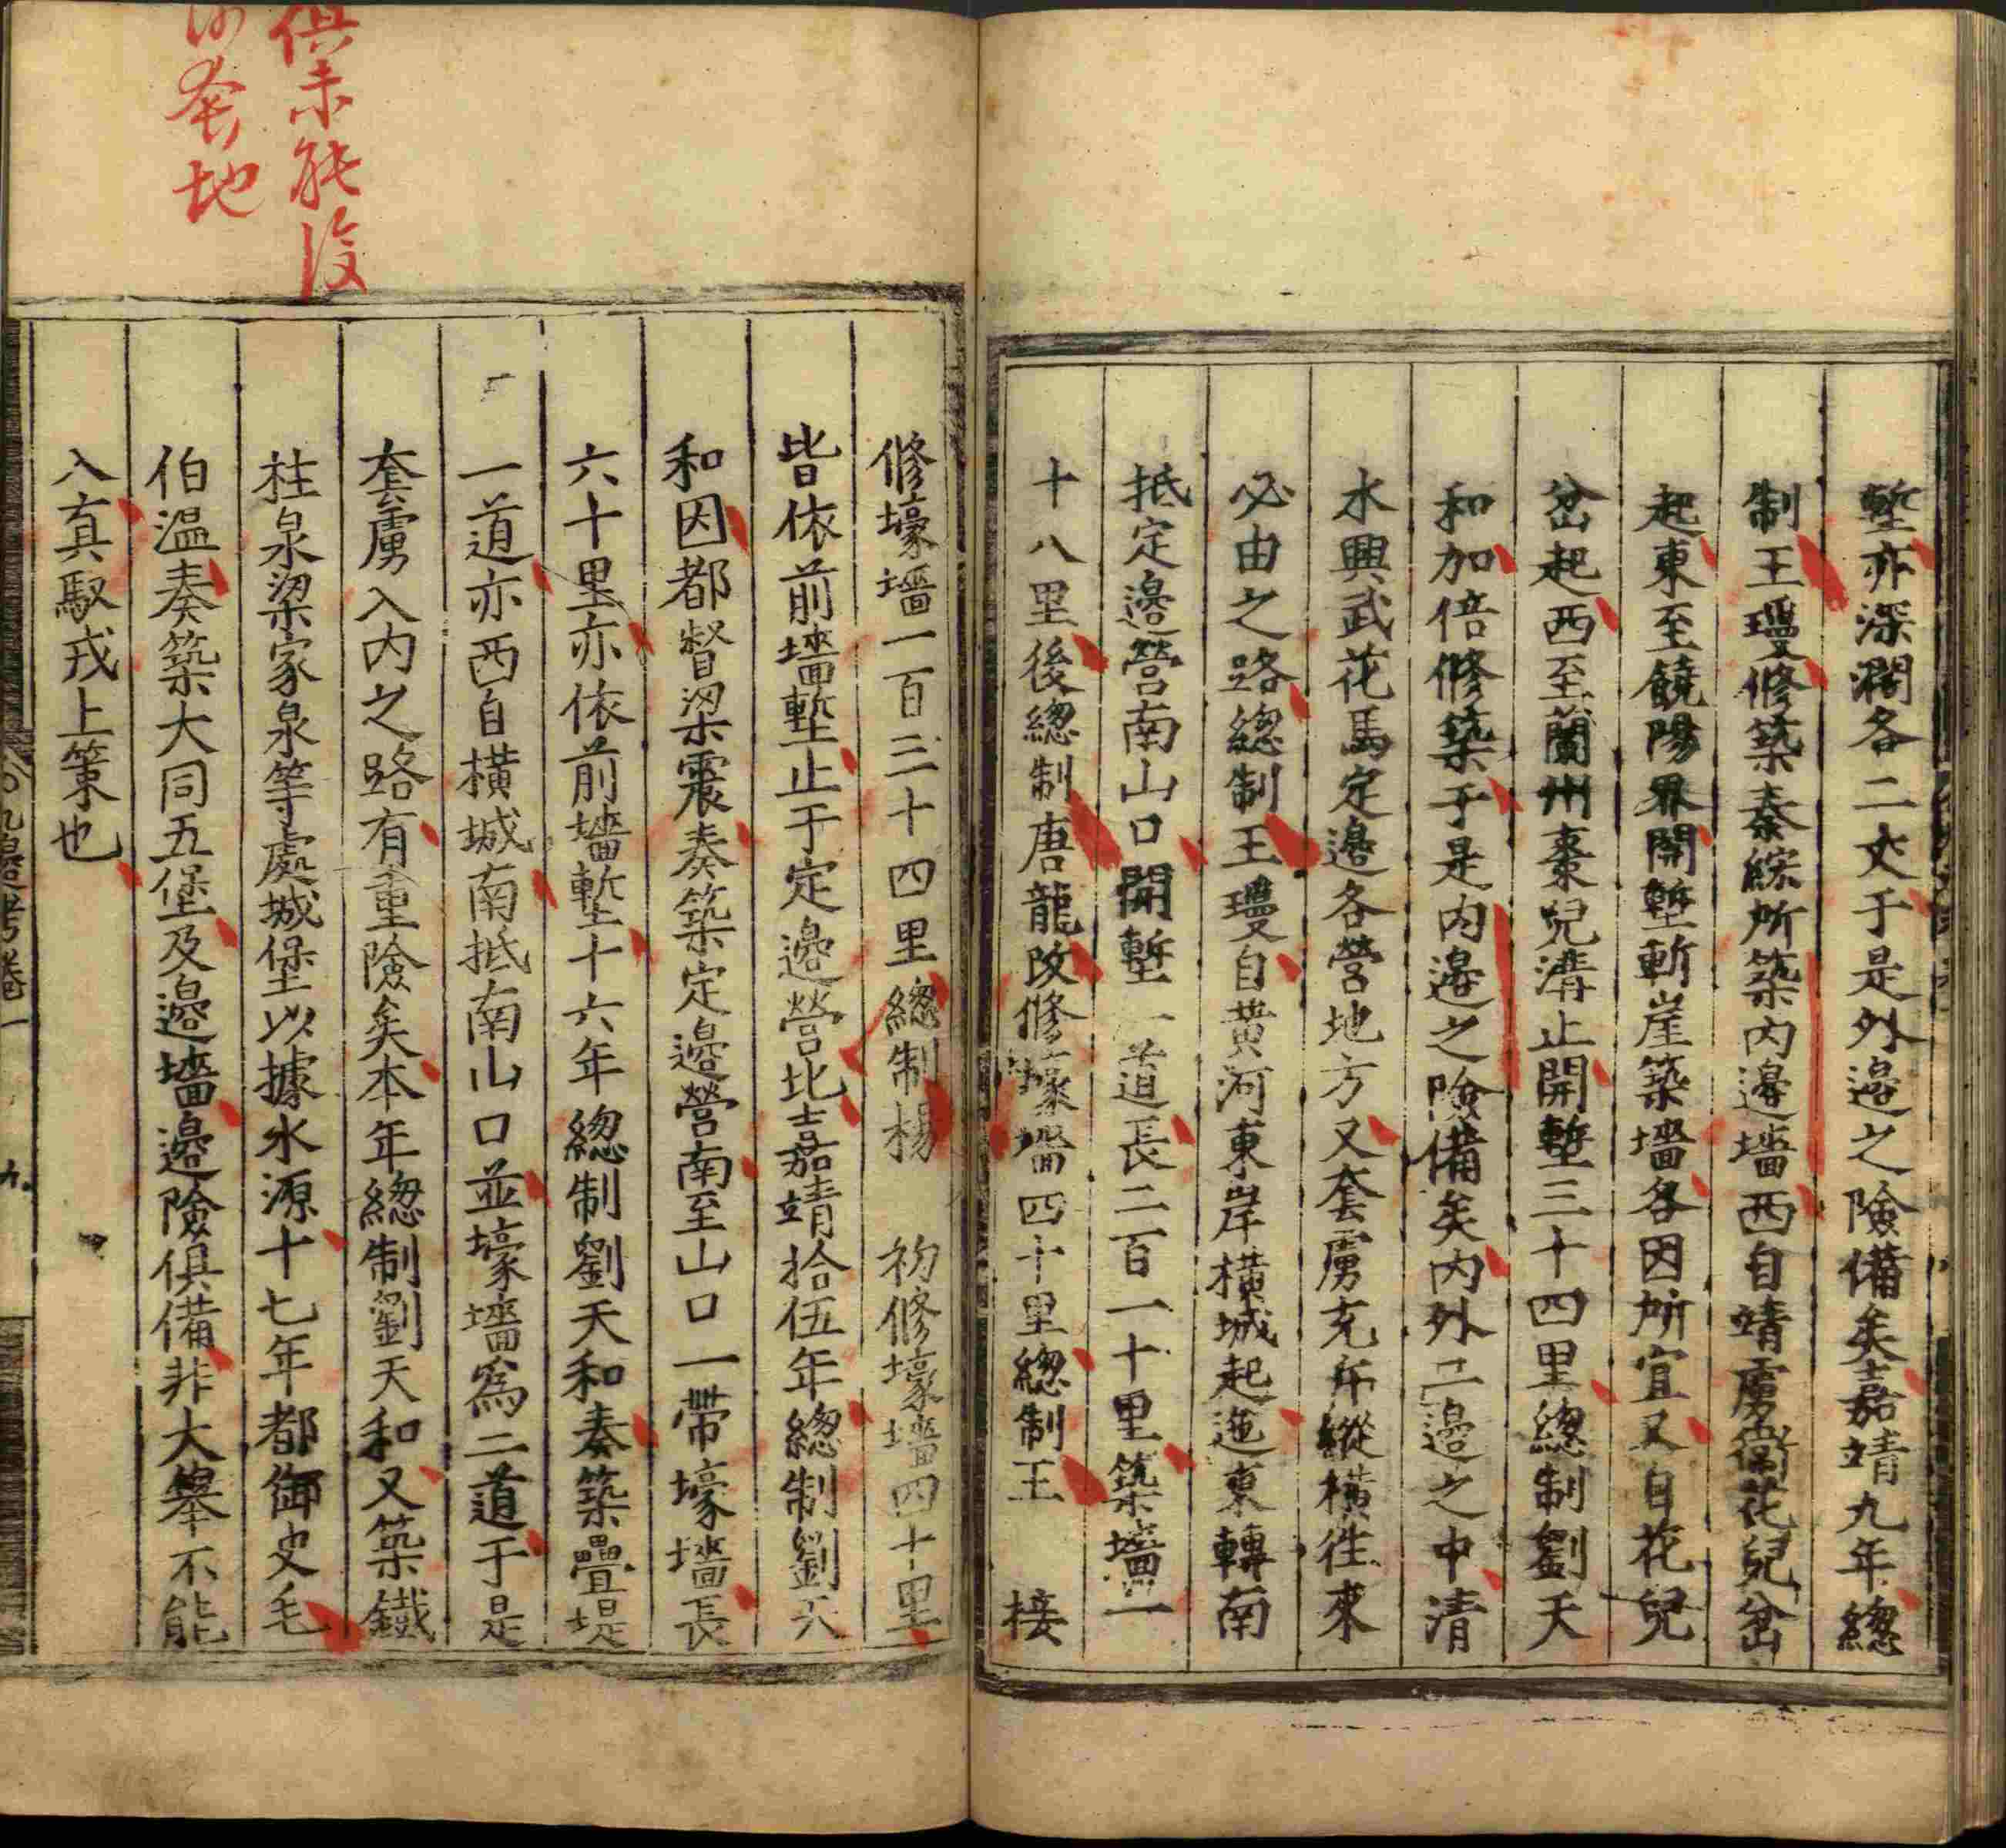 塹亦深濶各二丈于是外邉之險備矣嘉靖九年緫
制王瓊修築秦綋所築内邉墻西自靖虜衛花兒岔
起東至饒陽界開塹斬崖築墻各因所宜又自花兒
岔起西至蘭州棗兒溝止開塹三十四里緫制劉天
和加倍修築于是内邉之險備矣内外二邉之中清
水興武花馬定邉各營地方又套虜充年縱横徃來
必由之路緫制王瓊自黄河東岸横城起迤東轉南
抵定邉營南山口開塹一道長二百一十里築墻一
十八里後緫制唐龍改修壕墻四十里緫制王 接
修壕墻一百三十四里緫制楊 初修壕墻四十里
皆依前墻塹止于定邉營北嘉靖拾伍年緫制劉天
和因都督梁震奏築定邉營南至山口一帶壕墻長
六十里亦依前墻塹十六年緫制劉天和奏築疊堤
一道亦西自横城南抵南山口並壕墻爲二道于是
套虜入内之路有重險矣本年緫制劉天和又築鐵
柱泉梁家泉等處城堡以據水源十七年都御史毛
伯温奏築大同五堡及邉墻邉險俱備非大舉不能
入真馭戎上策也
九邉考卷一
九
俱未能復
套地